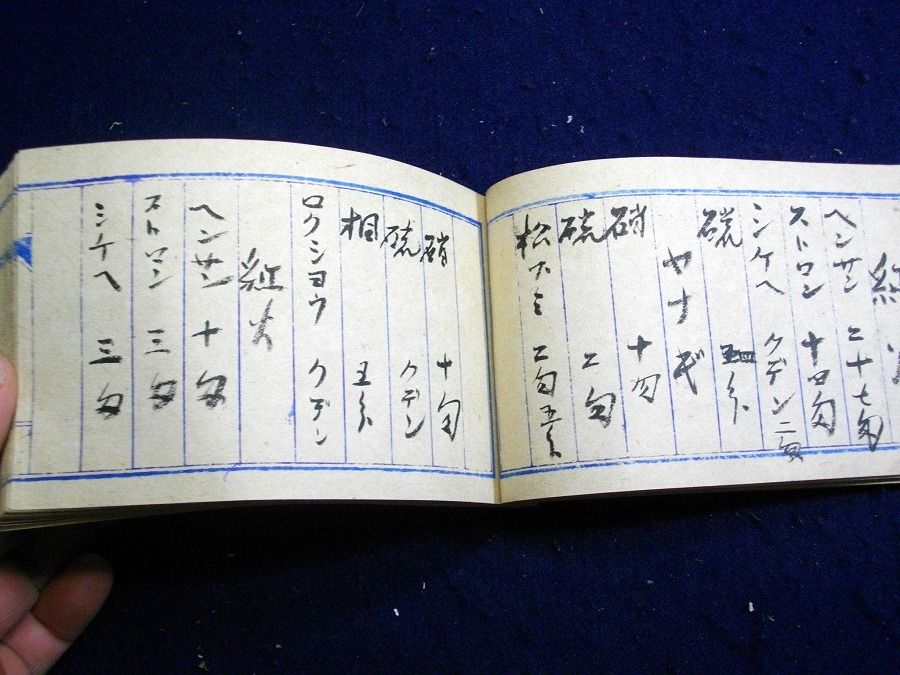 紅火
ヘンサン 二十七匁
ストロン 十四匁
シケヘ クデン 二匁
硫 五分
ヤナギ
硝 十匁
硫 二匁
松スミ 二匁五分
硝 十匁
硫 クデン
桐 五分
ロクシヨウ クデン
紅火
ヘンサン 十匁
ストロン 三匁
シケヘ 三匁